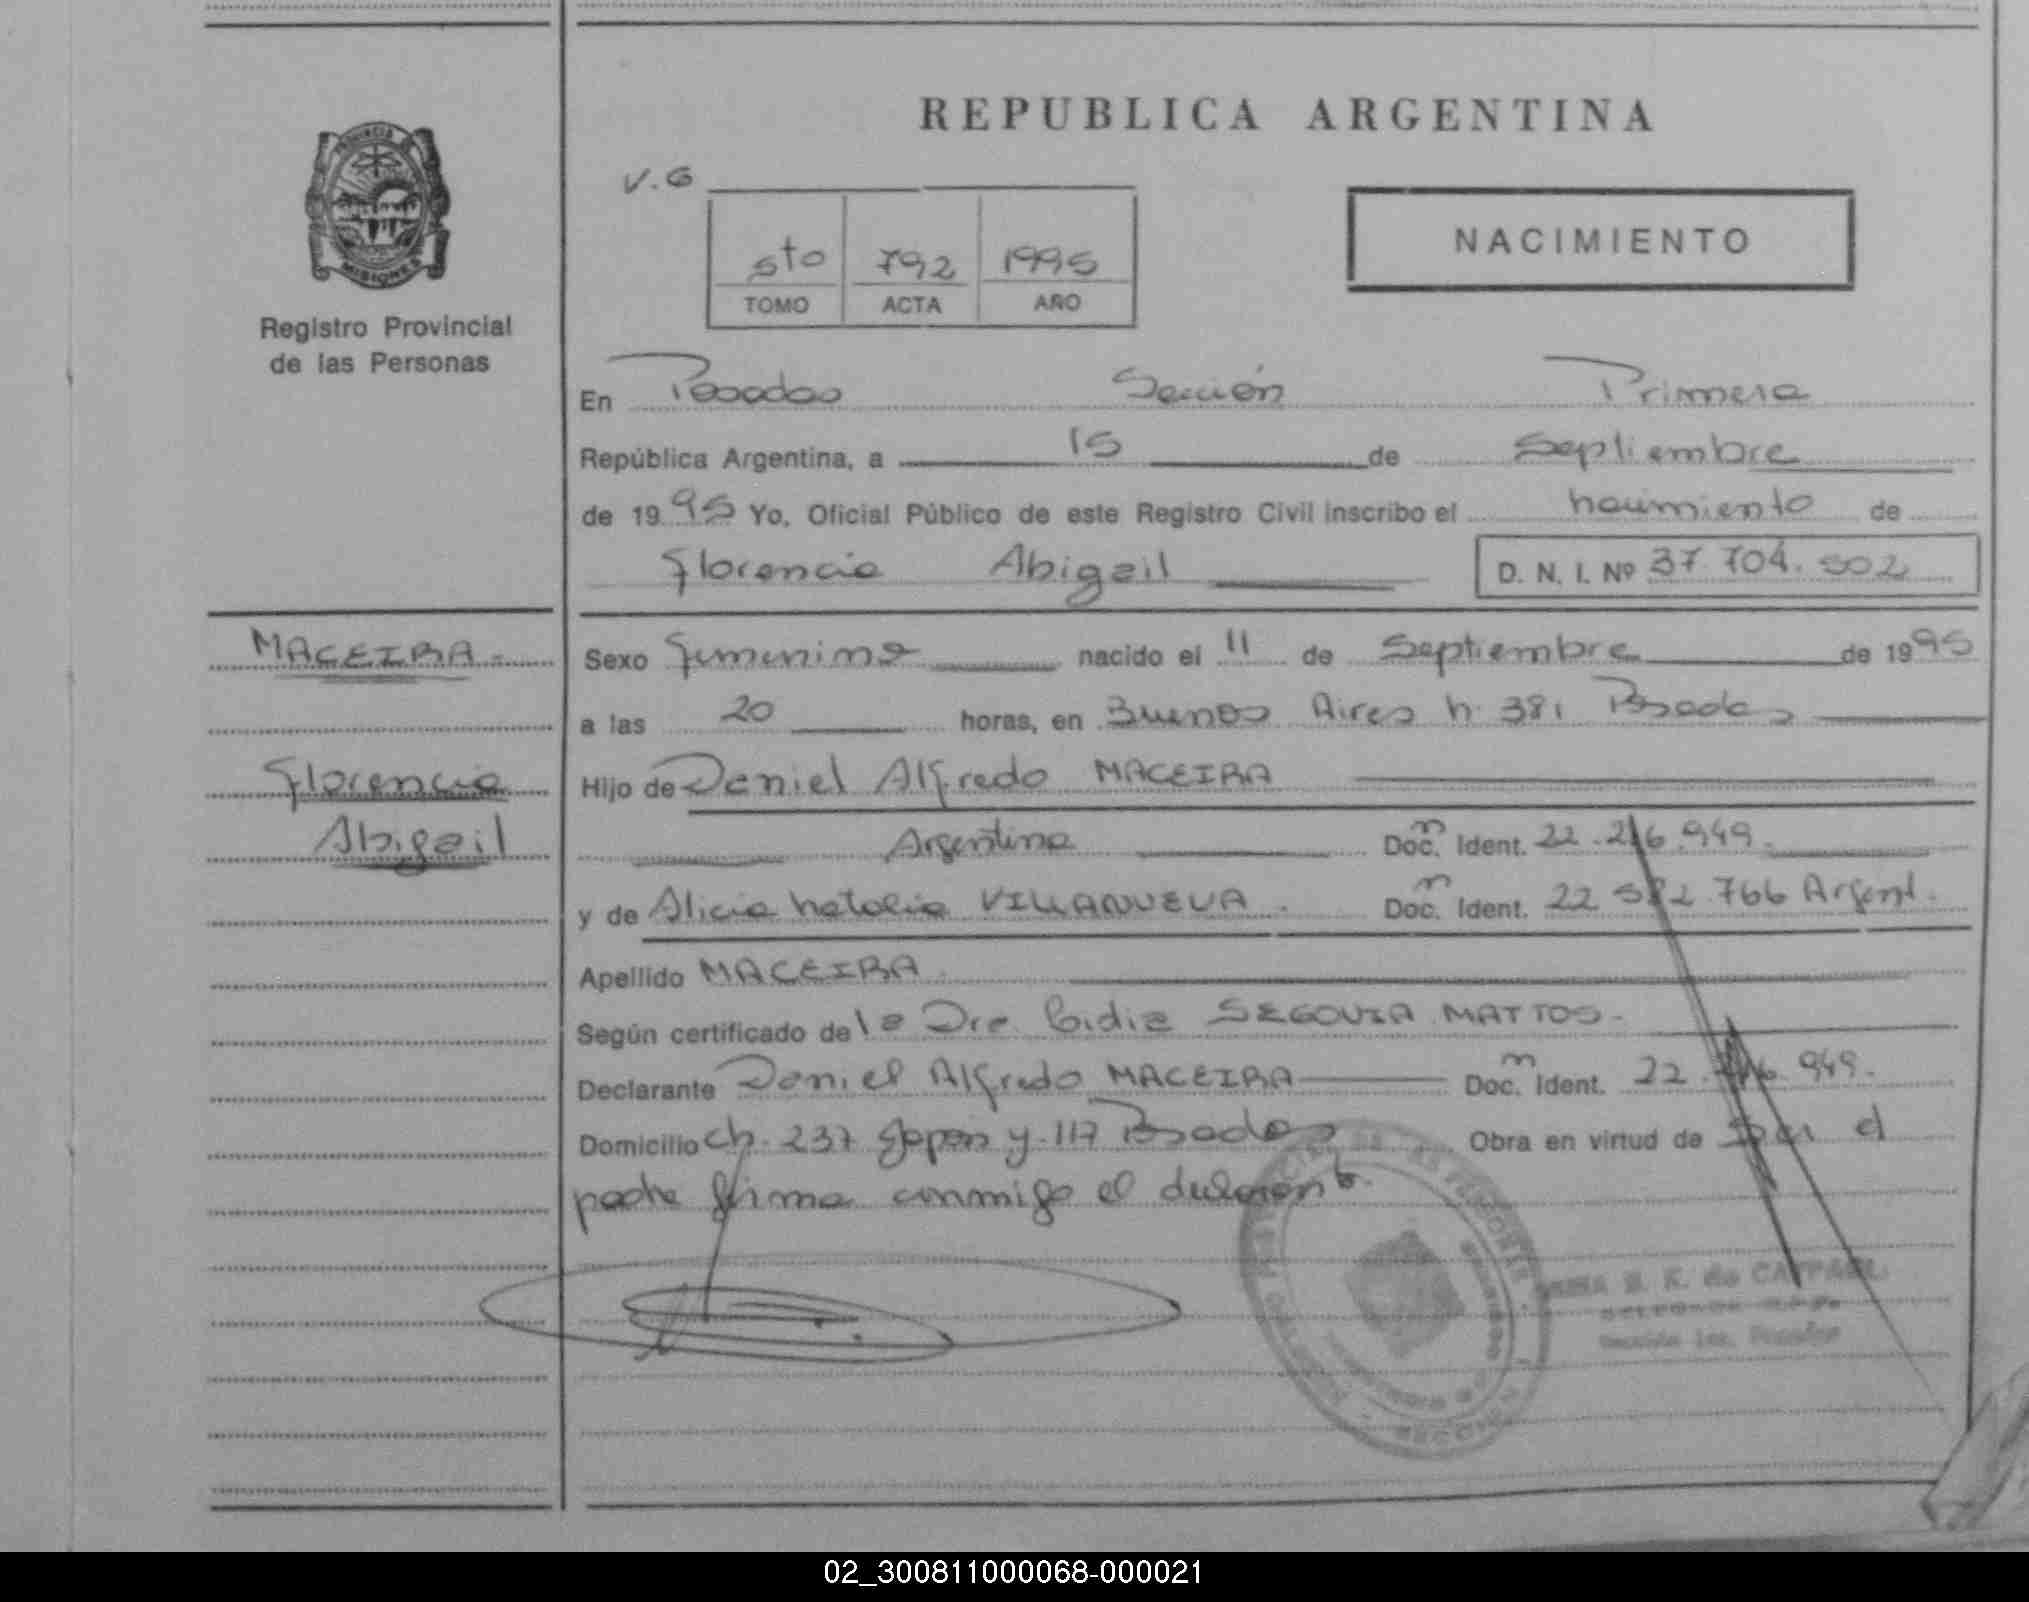 REPUBLICA ARGENTINA
PROVINCIA DE
MISIONES
Registro Provincial
de las Personas
V.G
5to 792 1995
TOMO ACTA AÑO
NACIMIENTO
En Posadas Sección Primera
República Argentina, a 15 de Septiembre
de 1995 Yo, Oficial Público de este Registro Civil inscribo el nacimiento de
Florencia Abigail D. N. I. Nº 37.704.502
MACEIRA
Florencia
Abigail
Sexo femenino nacido el 11 de Septiembre de 1995
a las 20 horas, en Buenos Aires n. 381 Posadas
Hijo de Daniel Alfredo MACEIRA
Argentina Doc. Ident. 22.216.949.
y de Alicia Natalia VILLANUEVA. Doc. Ident. 22 582.766 Argent.
Apellido MACEIRA
Según certificado de la Dra. Lidia SEGOVIA MATTOS.
Declarante Daniel Alfredo MACEIRA Doc. Ident. 22. 949.
Domicilio Ch. 237 Japón y 117 Posadas Obra en virtud de ser el
padre firma conmigo el
de
DELEGADA R.P.P.
Sección 1ra. Posadas
02_300811000068-000021